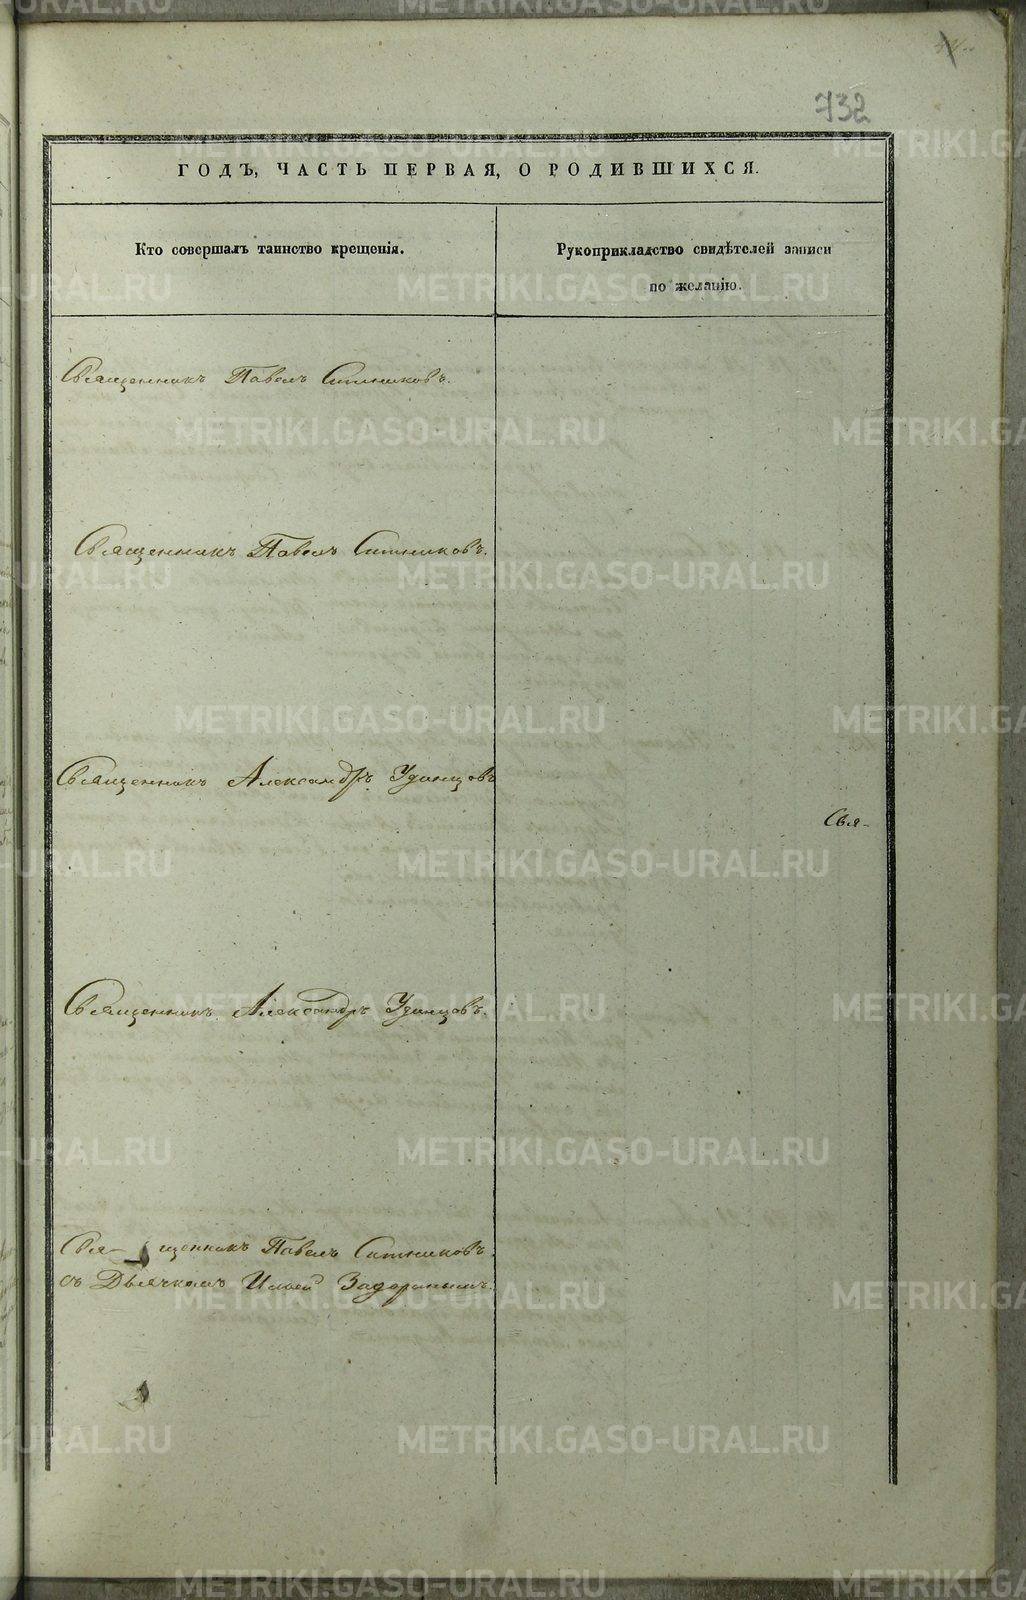 732
ГОДЪ, ЧАСТЬ ПЕРВАЯ, О РОДИВШИХСЯ.
Кто совершалъ таинство крещенія.
Рукоприкладство свидѣтелей записи
по желанію.
Священникъ Павелъ Ситниковъ.
Священникъ Павелъ Ситниковъ.
Священникъ Александръ Удинцовъ
Свя-
Священникъ Александръ Удинцовъ.
Свя- щенникъ Павелъ Ситниковъ.
съ Дьячкомъ Ильей Задоринымъ.
METRIKI.GASO-URAL.RU